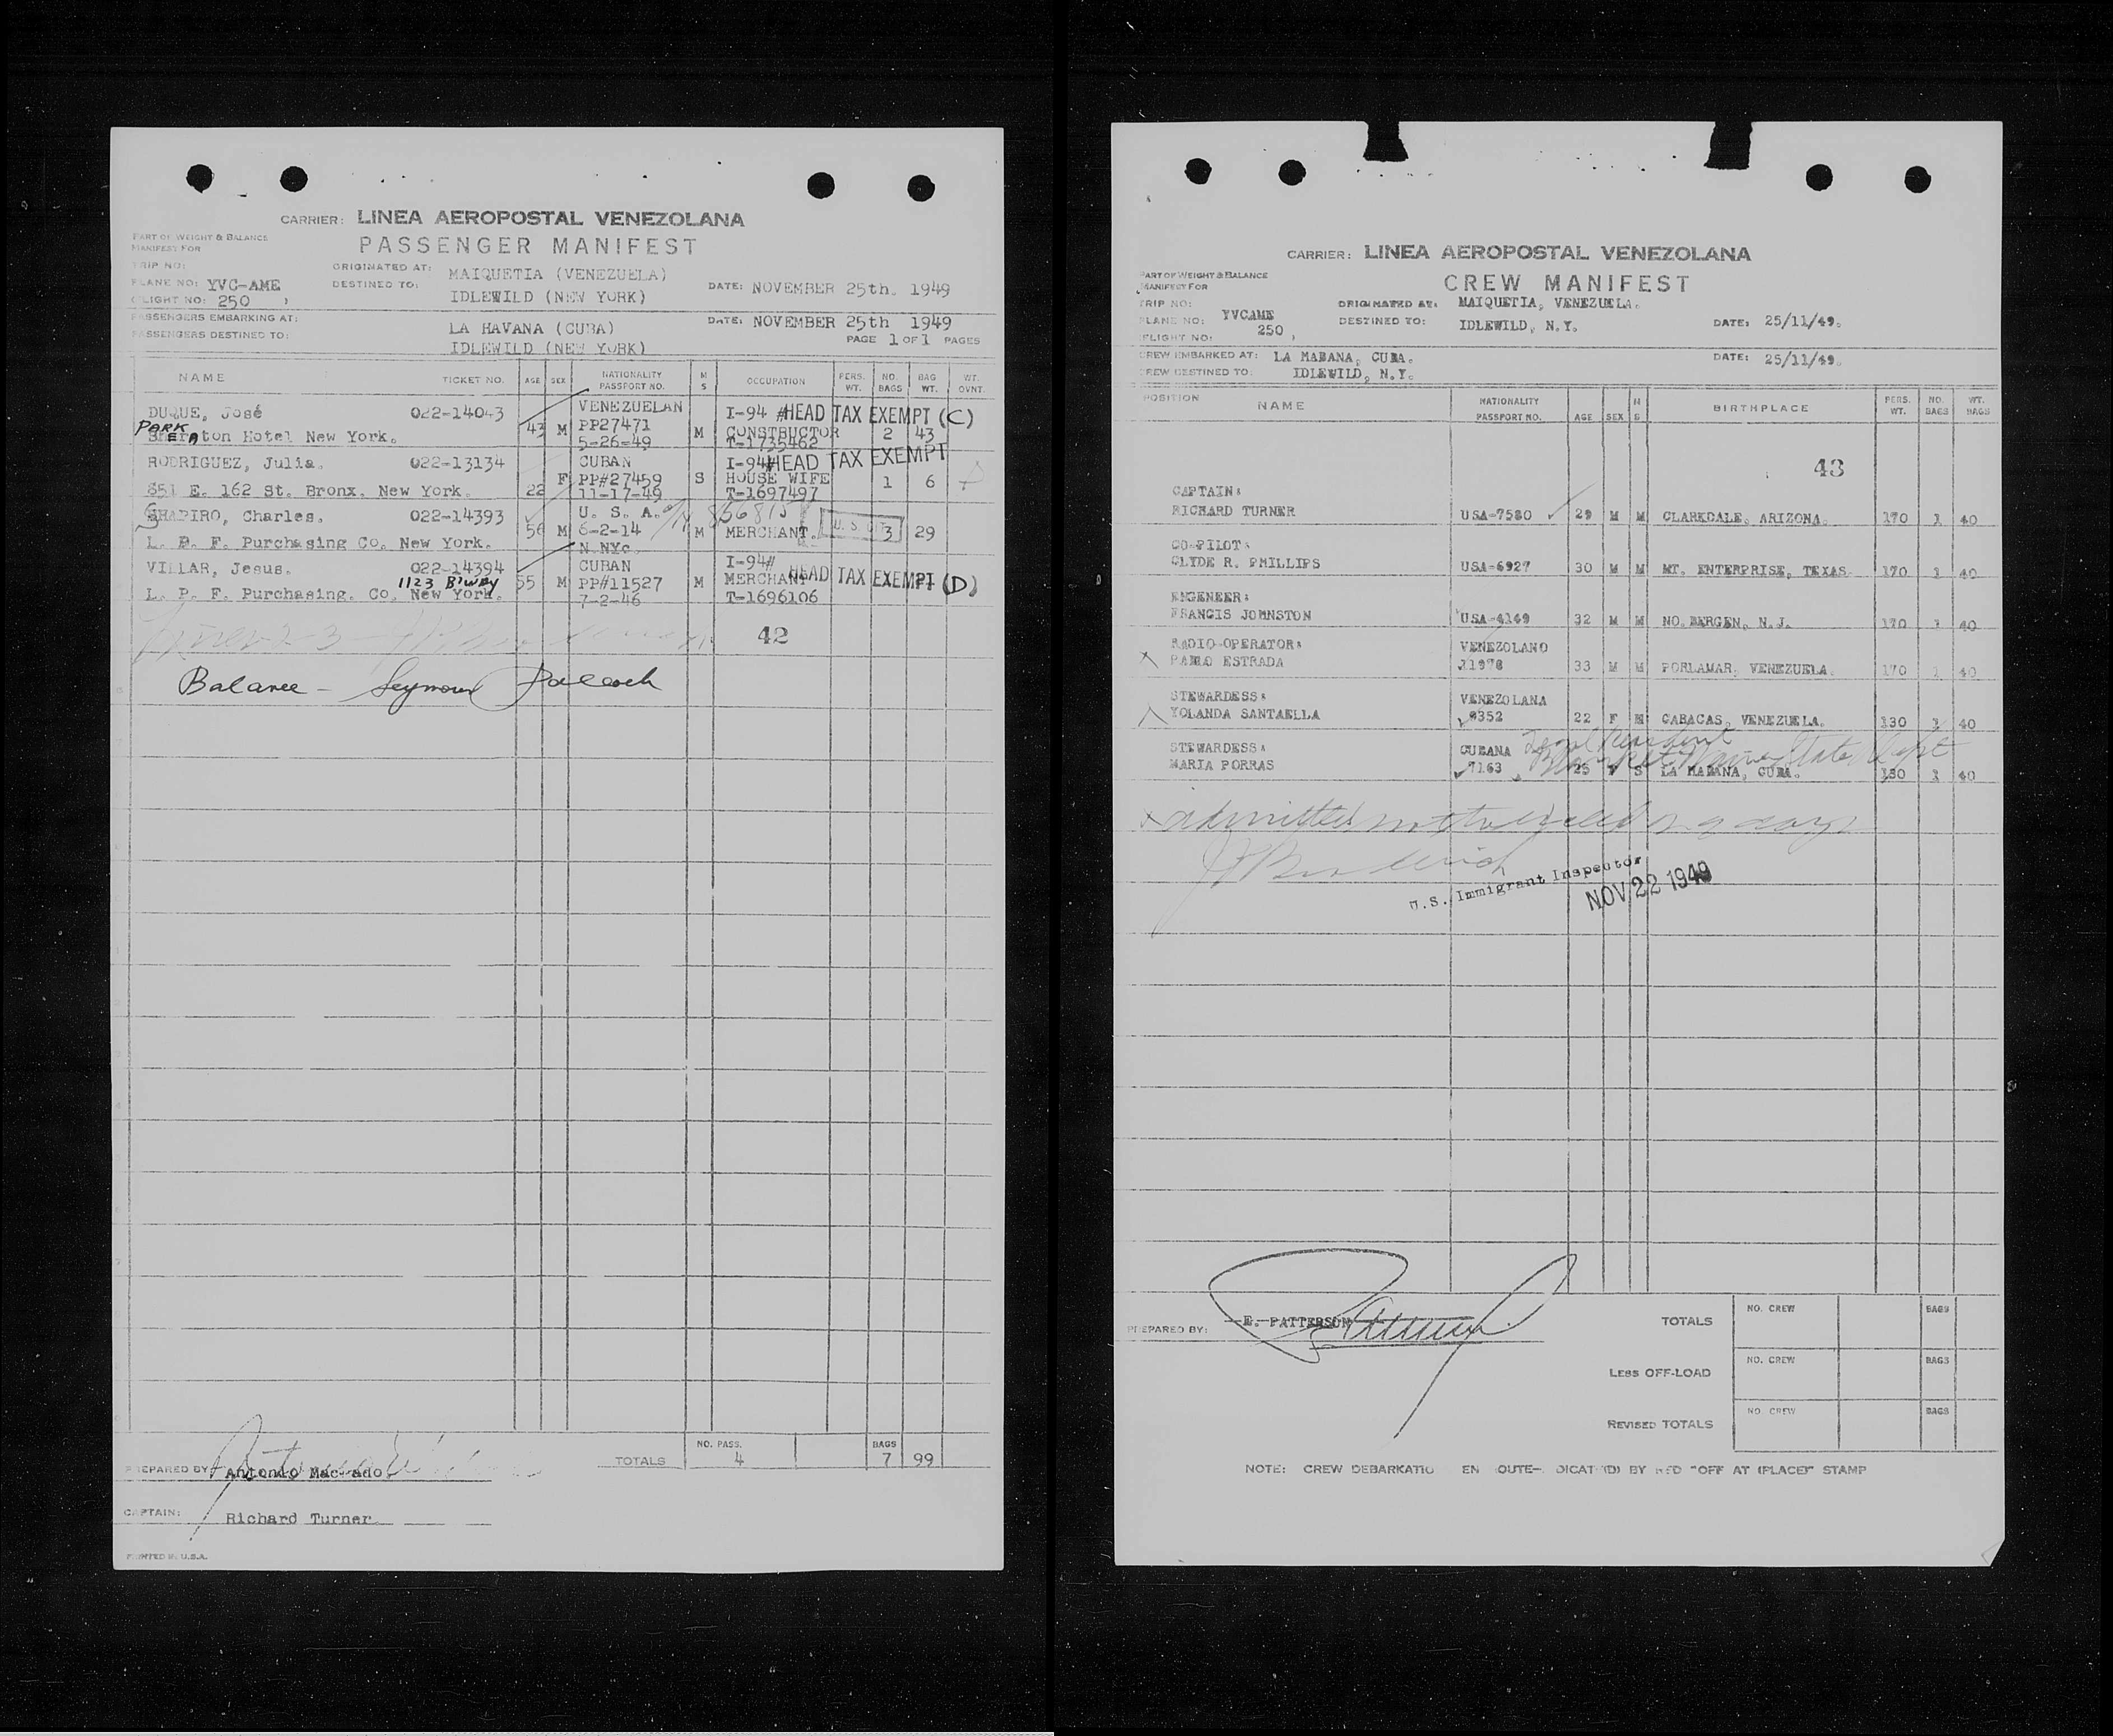 CARRIER: LINEA AEROPOSTAL VENEZOLANA
PART OF WEIGHT & BALANCE
MANIFEST FOR
PASSENGER MANIFEST
TRIP NO:
ORIGINATED AT: MAIQUETIA (VENEZUELA)
PLANE NO: YVC-AME
DESTINED TO: IDLEWILD (NEW YORK)
DATE: NOVEMBER 25th. 1949
(FLIGHT NO: 250 )
PASSENGERS EMBARKING AT: LA HAVANA (CUBA)
DATE: NOVEMBER 25th 1949
PASSENGERS DESTINED TO: IDLEWILD (NEW YORK)
PAGE 1 OF 1 PAGES
NAME TICKET NO. AGE SEX NATIONALITY PASSPORT NO. M S OCCUPATION PERS. WT. NO. BAGS BAG WT. WT. OVNT.
VENEZUELAN
DUQUE, José 022-14043 I-94 #HEAD TAX EXEMPT (C)
PARK 43 M PP27471 M CONSTRUCTOR 2 43
Sheraton Hotel New York. 5-26-49 T-1735462
RODRIGUEZ, Julia. 022-13134 CUBAN I-94#HEAD TAX EXEMPT
F PP#27459 S HOUSE WIFE 1 6
851 E. 162 St. Bronx. New York. 22 11-17-49 T-1697497
SHAPIRO, Charles. 022-14393 U. S. A. 856815
56 M 6-2-14 M MERCHANT. U. S. CIT 3 29
L. P. F. Purchasing Co. New York. N.NYc.
VILLAR, Jesus. 022-14394 CUBAN I-94#
1123 B'way 55 M PP#11527 M MERCHANT HEAD TAX EXEMPT (D)
L. P. F. Purchasing. Co. New York. 7-2-46 T-1696106
42
Balance - Seymour
TOTALS NO. PASS. 4 BAGS 7 99
PREPARED BY: Antonio Machado
CAPTAIN: Richard Turner.
PRINTED IN U.S.A.
CARRIER: LINEA AEROPOSTAL VENEZOLANA
PART OF WEIGHT & BALANCE
MANIFEST FOR
CREW MANIFEST
TRIP NO:
ORIGINATED AT: MAIQUETIA, VENEZUELA.
PLANE NO: YVCAME
DESTINED TO: IDLEWILD, N.Y.
DATE: 25/11/49.
(FLIGHT NO: 250 )
CREW EMBARKED AT: LA HABANA, CUBA.
DATE: 25/11/49.
CREW DESTINED TO: IDLEWILD, N.Y.
POSITION NAME NATIONALITY PASSPORT NO. AGE SEX M S BIRTHPLACE PERS. WT. NO. BAGS WT. BAGS
43
CAPTAIN:
RICHARD TURNER USA-7580 29 M M CLARKDALE, ARIZONA. 170 1 40
CO-PILOT:
CLYDE R. PHILLIPS USA-6927 30 M M MT. ENTERPRISE, TEXAS. 170 1 40
ENGENEER:
FRANCIS JOHNSTON USA-4149 32 M M NO. BERGEN, N.J. 170 1 40
RADIO-OPERATOR: VENEZOLANO
PABLO ESTRADA 11978 33 M M PORLAMAR, VENEZUELA. 170 1 40
STEWARDESS: VENEZOLANA
YOLANDA SANTAELLA 8352 22 F M CARACAS, VENEZUELA. 130 1 40
STEWARDESS: CUBANA
MARIA PORRAS 7163 25 F S LA HABANA, CUBA. 130 1 40
x admitted not to exceed 29 days
U.S. Immigrant Inspector
NOV 22 1949
PREPARED BY: E. PATTERSON
TOTALS NO. CREW BAGS
LESS OFF-LOAD NO. CREW BAGS
REVISED TOTALS NO. CREW BAGS
NOTE: CREW DEBARKATIO EN OUTE- DICAT D BY RED "OFF AT (PLACE)" STAMP